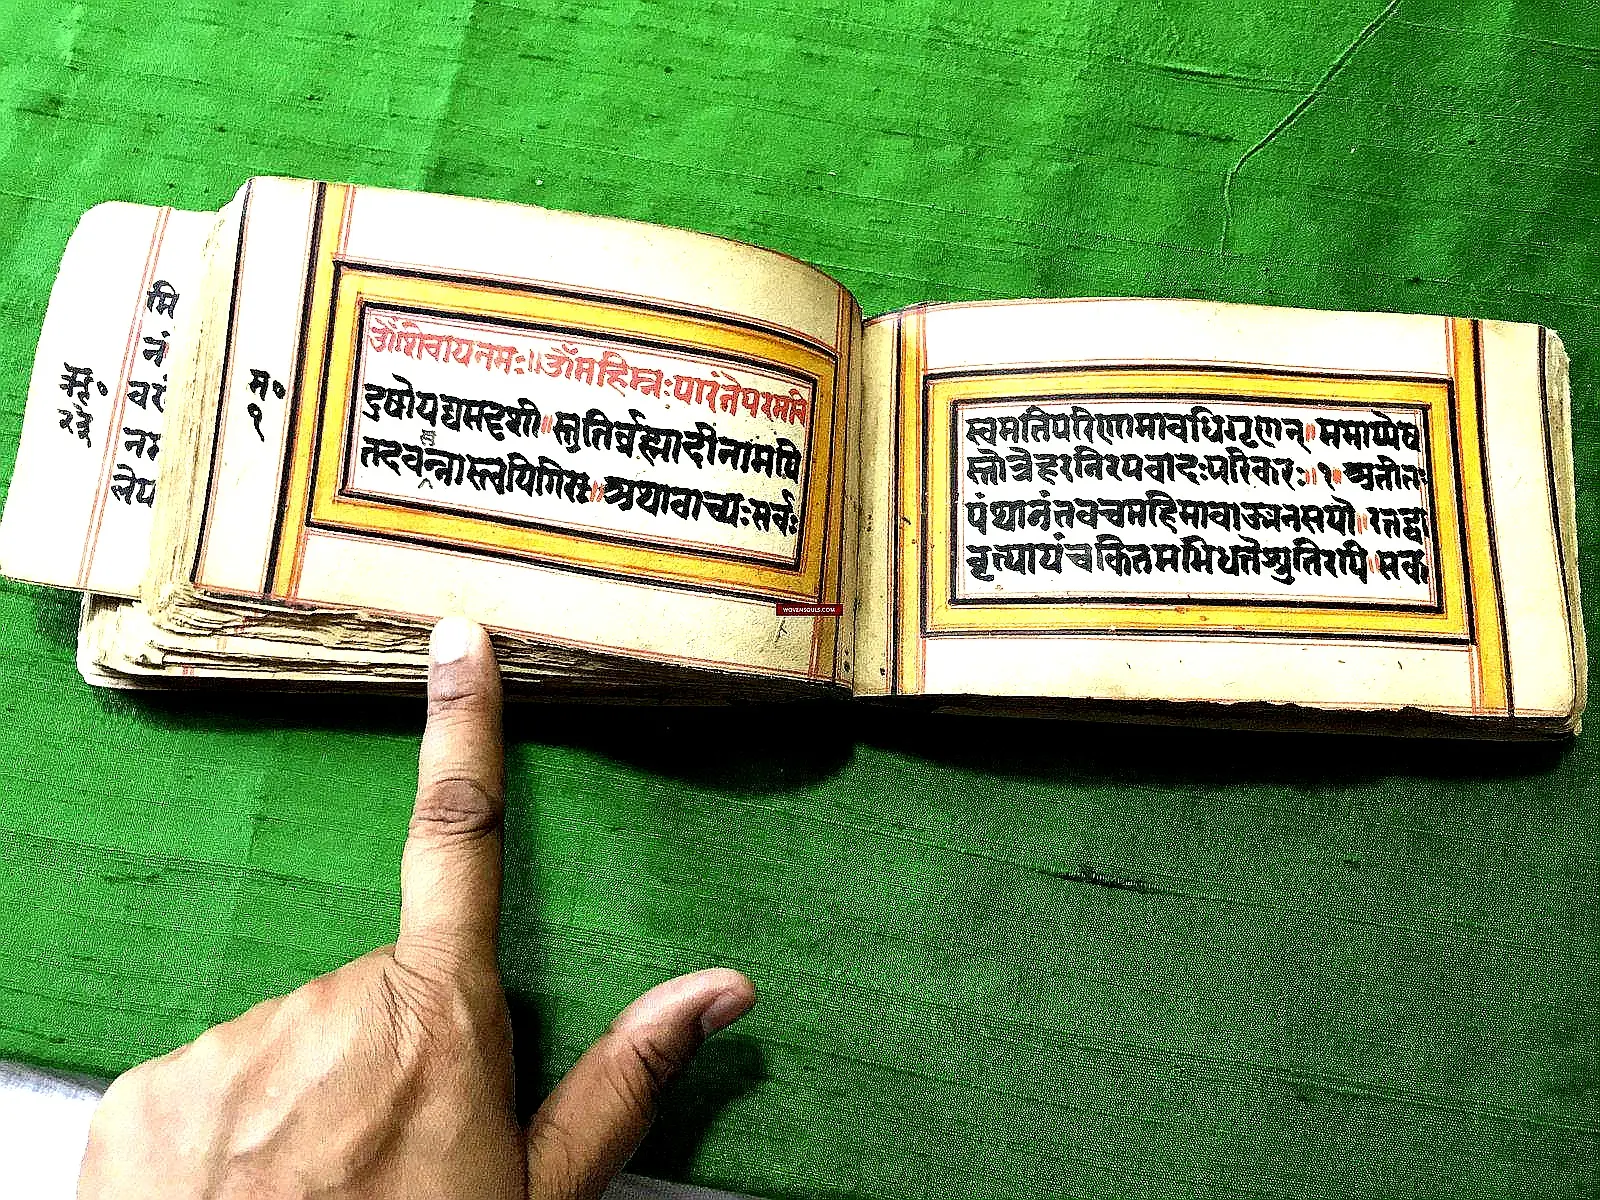 मि
नं
व रे
नम
लेप
म॰
१
ॐशिवायनमः॥ॐमहिम्नःपारंतेपरमवि
दुषोयद्यसदृशी॥स्तुतिर्ब्रह्मादीनामपि
तदवसन्नास्त्वयिगिरः॥अथावाच्यःसर्वः
स्वमतिपरिणामावधिगृणन्॥ममाप्येष
स्तोत्रेहरनिरपवादःपरिकरः॥१॥अतीतः
पंथानंतवचमहिमावाङ्मनसयो॥रतद्व्या
वृत्यायंचकितमभिधत्तेश्रुतिरपि॥सक
WOVENSOULS.COM